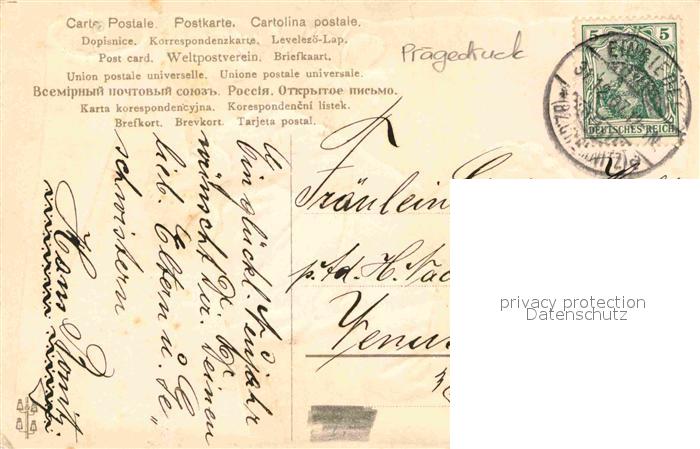 Carte Postale. Postkarte. Cartolina postale.
Dopisnice. Korrespondenzkarte. Levelező-Lap.
Post card. Weltpostverein. Briefkaart.
Union postale universelle. Unione postale universale.
Всемірный почтовый союзъ. Россія. Открытое письмо.
Karta korespondencyjna. Korespondenční listek.
Brefkort. Brevkort. Tarjeta postal.
Prägedruck
5 5
DEUTSCHES REICH
Fräulein
p. Ad. H.
Venu
Ein glückl. Neujahr
wünscht Dir. Deinen
lieb. Eltern u. Ge„
schwistern
Hans
privacy protection
Datenschutz